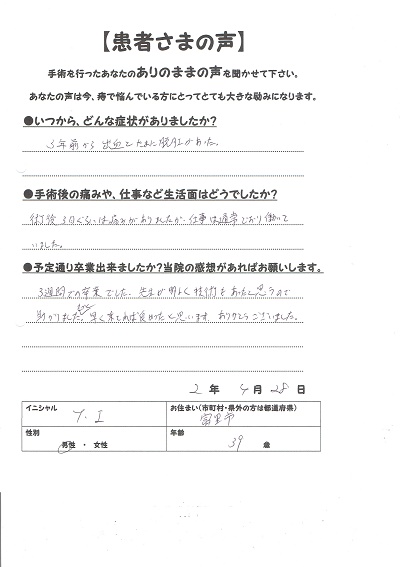 【患者さまの声】
手術を行ったあなたのありのままの声を聞かせて下さい。
あなたの声は今、痔で悩んでいる方にとってとても大きな励みになります。
●いつから、どんな症状がありましたか?
3年前から 出血とたまに脱肛があった。
●手術後の痛みや、仕事など生活面はどうでしたか?
術後3日ぐらいは痛みがありましたが、仕事は通常どおり働いて
いました。
●予定通り卒業出来ましたか?当院の感想があればお願いします。
3週間での卒業でした。先生が明るく技術もあったと思うので
助かりました。もっと早く来れば良かったと思います。ありがとうございました。
2 年 4 月 28 日
イニシャル
T.I
お住まい(市町村・県外の方は都道府県)
富里市
性別
男性 ・ 女性
年齢
39 歳